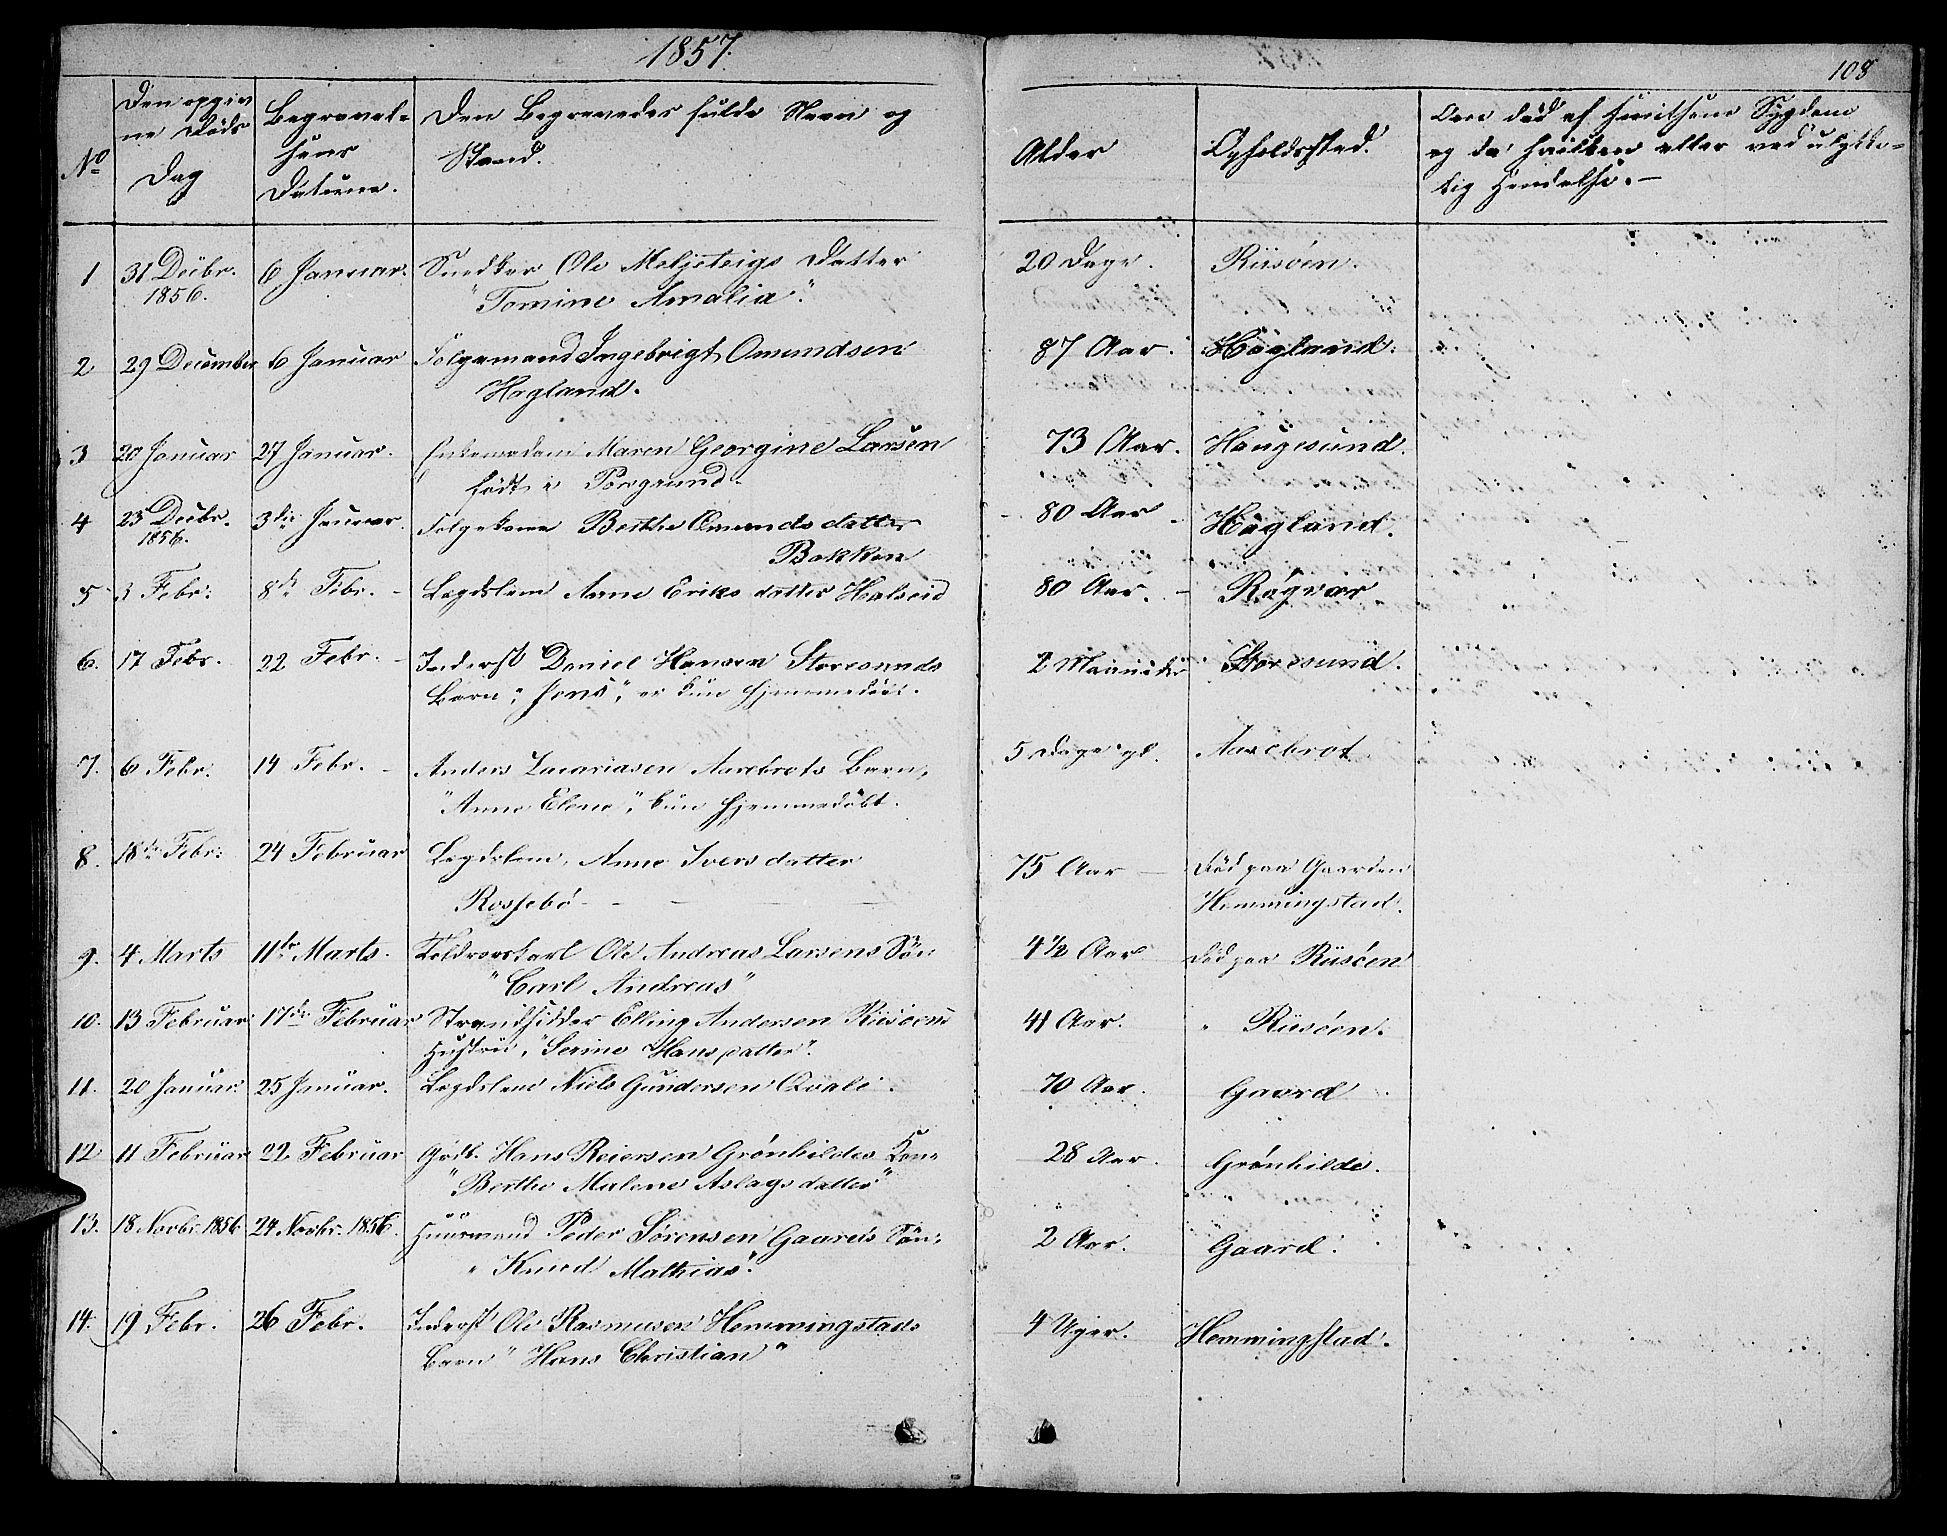 1857.
108
No
Den opgiv
ne Døds
Dag
Begravel-
sens
Datum.
Den Begravedes fulde Navn og
Stand.
Alder
Opholdssted.
Om død af smitsom Sygdom
og da hvilken eller ved ulykke-
lig Hendelse.-
1 31 Decbr. 1856. 6 Januar. Snedker Ole Meljeteigs Datter 20 Dage. Riisöen.
"Tomine Amalia".
2 29 December 6 Januar Folgemand Ingebrigt Omundsen 87 Aar. Hagland.
Hagland.
3 20 Januar 27 Januar. Enkemadam Maren Georgine Larsen 73 Aar. Haugesund.
født i Porgrund.
4 23 Decbr. 1856. 3die Januar. Folgekone Berthe Omunds datter 80 Aar - Hagland.
Bakken
5 3 Febr: 8de Febr. - Legdslem Anne Eriks datter Halseid 80 Aar. - Rógvær
6. 17 Febr. 22 Febr. - Inderst Daniel Hansen Storesunds 2 Maaneder Storesund.
Barn, "Jens", er kun hjemmedöbt.
7. 6 Febr. 14 Febr. - Anders Zacariasen Aarebrots Barn, 5 Dage gl. Aarebrot
"Anne Elene", kun hjemmedöbt.
8. 18de Febr: 24 Februar Legdslem, Anne Ivers datter 75 Aar - Död paa Gaarden
Rossebö - - - - Hemmingstad.
9. 4 Marts 11te Marts. Ole Andreas Larsens Sön 4 1/2 Aar Död paa Riisöen
"Carl Andreas"
10. 13 Februar 17de Februar Strandsidder Elling Andersen Riisöens 41 Aar. " Riisöen.
Hustru, "Serine Hans datter".
11. 20 Januar. 25 Januar. Legdslem Niels Gundersen Qvale. 70 Aar. Gaard
12 11 Februar 22 Februar Gdb. Hans Reiersen Grönhildes Kone 28 Aar. Grönhilde.
"Berthe Malene Aslags datter"
13. 18 Novbr. 1856 24 Novbr. 1856. Huusmand Peder Sørensen Gaards Sön, 2 Aar. Gaard.
"Knud Mathias".
14. 19 Febr. 26 Febr. Inderst Ole Rasmusen Hemmingstads 4 Uger. Hemmingstad.
Barn "Hans Christian"